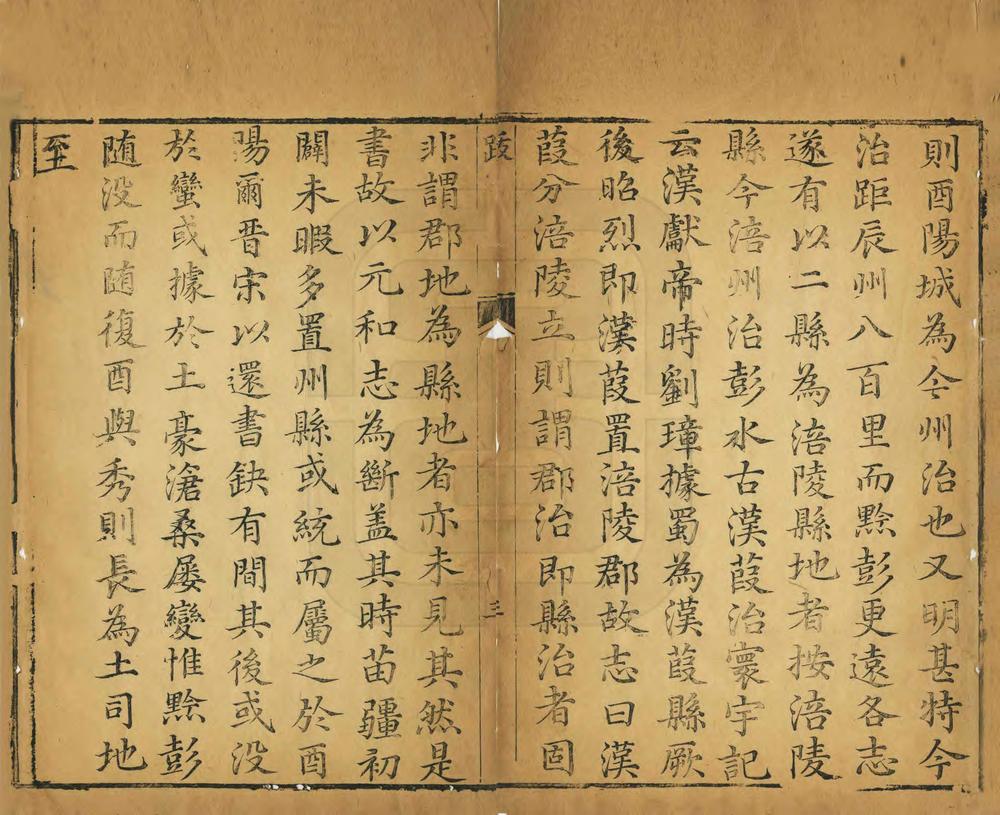 則酉陽城為今州治也又明甚特今
治距辰州八百里而黔彭更遠各志
遂有以二縣為涪陵縣地者按涪陵
縣今涪州治彭水古漢葭治寰宇記
云漢獻帝時劉璋據蜀為漢葭縣厥
後昭烈即漢葭置涪陵郡故志曰漢
葭分涪陵立則謂郡治即縣治者固
跋
三
非謂郡地為縣地者亦未見其然是
書故以元和志為斷盖其時苗疆初
闢未暇多置州縣或統而屬之於酉
陽爾晉宋以還書缺有間其後或没
於蠻或據於土豪滄桑屢變惟黔彭
随没而随復酉與秀則長為土司地
至